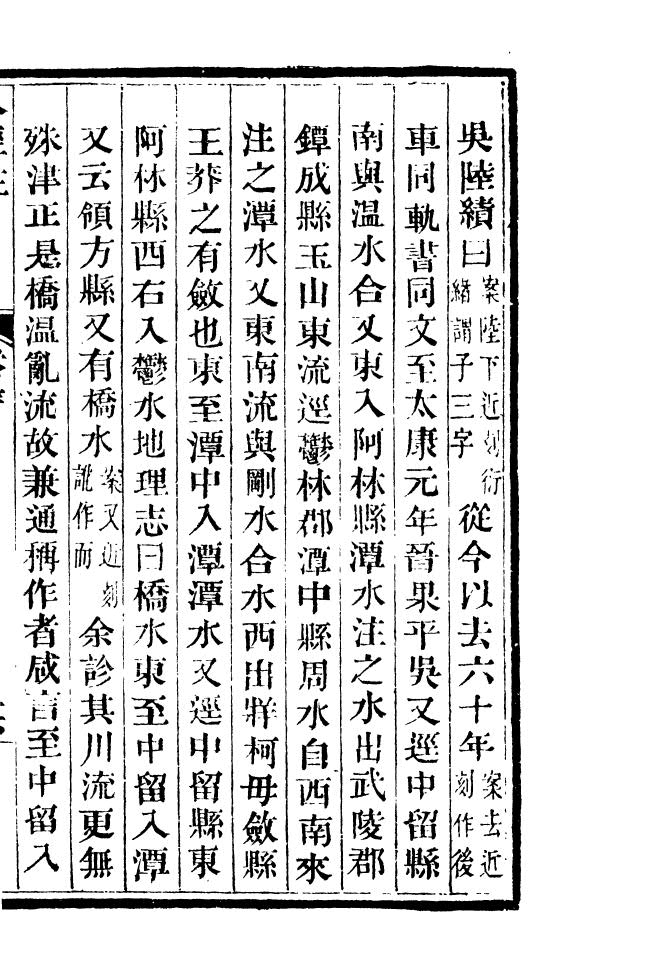 吳陸績曰案陸下近刻衍緒謂子三字從今以去六十年案去近刻作後
車同軌書同文至太康元年晉果平吳又逕中留縣
南與温水合又東入阿林縣潭水注之水出武陵郡
鐔成縣玉山東流逕鬱林郡潭中縣周水自西南來
注之潭水又東南流與剛水合水西出牂柯毋斂縣
王莽之有斂也東至潭中入潭潭水又逕中留縣東
阿林縣西右入鬱水地理志曰橋水東至中留入潭
又云領方縣又有橋水案又近刻訛作而余診其川流更無
殊津正是橋温亂流故兼通稱作者咸言至中留入